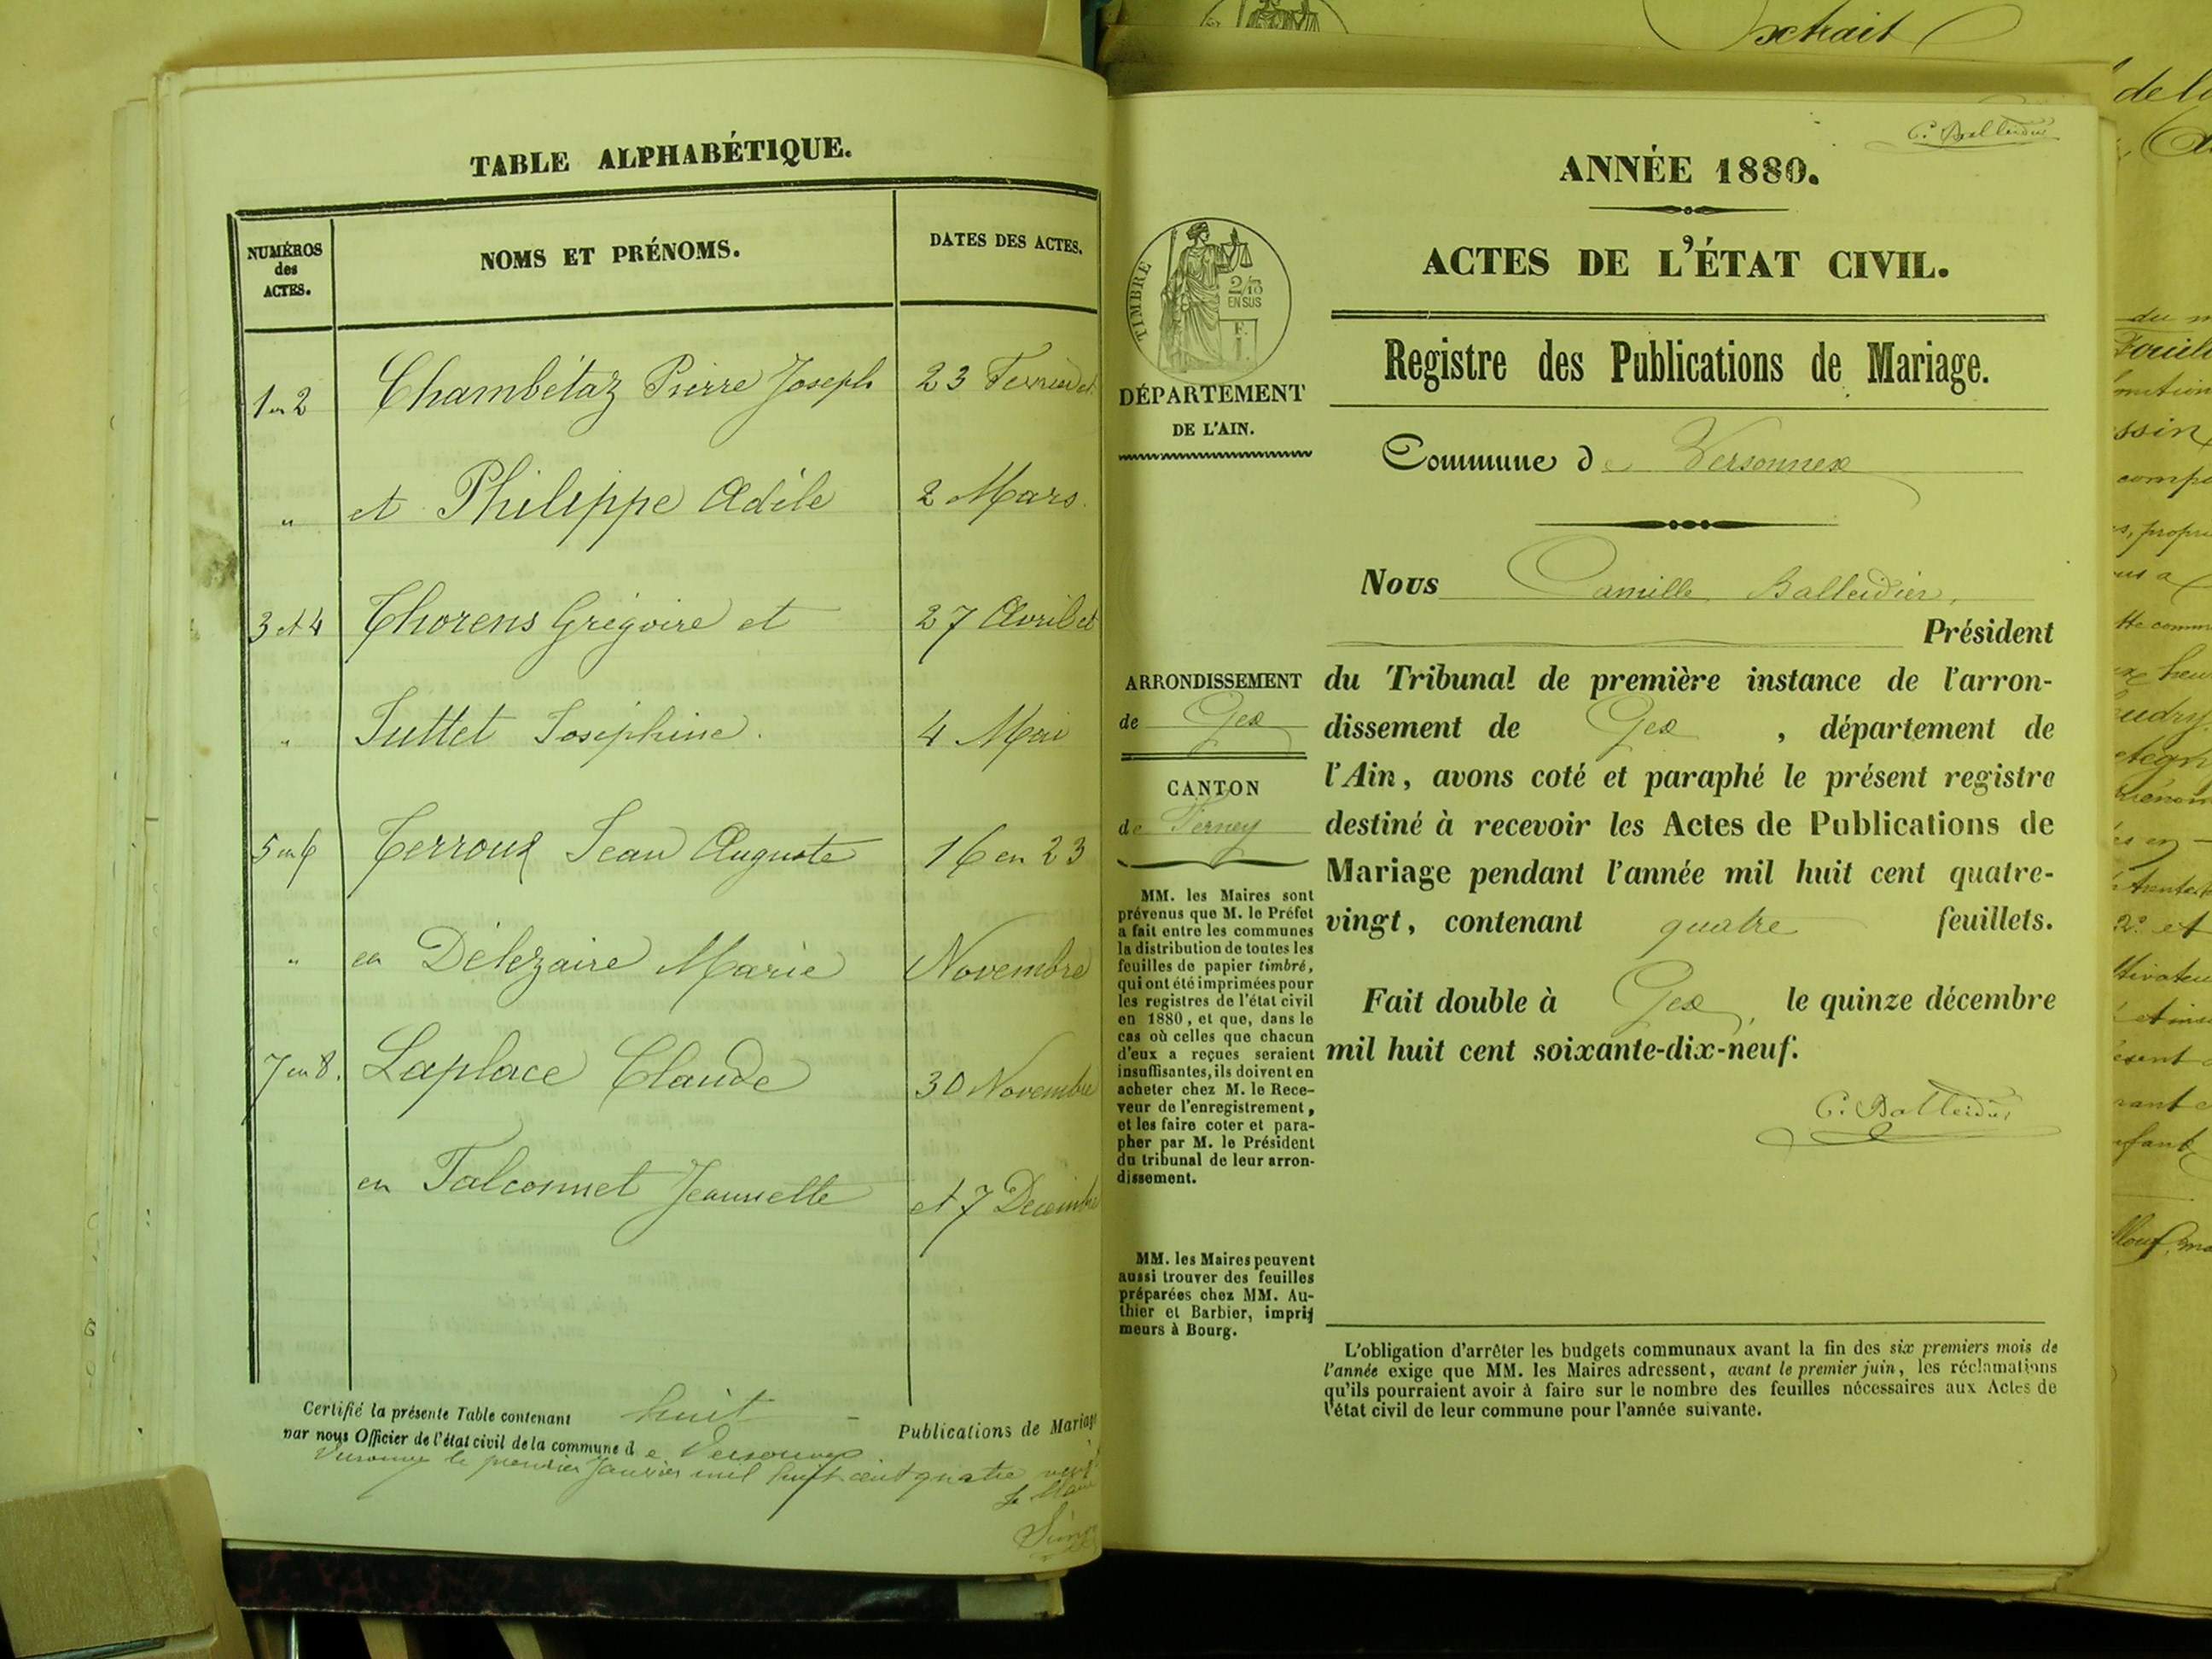 TABLE ALPHABÉTIQUE.
NUMÉROS
des
ACTES.
NOMS ET PRÉNOMS.
DATES DES ACTES.
1 et 2 Chambétaz Pierre Joseph 23 Fevrier et
" et Philippe Adéle 2 Mars.
3 et 4 Thorens Grégoire et 27 Avril et
" Tuttet Joséphine. 4 Mai
5 et 6 Terroux Jean Auguste 16 et 23
" et Délezaire Marie Novembre
7 et 8. Laplace Claude 30 Novembre
et Falconnet Jeannette et 7 Decembre
Certifié la présente Table contenant huit Publications de Mariage
par nous Officier de l'état civil de la commune de Versonnex
Versonnex le premier Janvier mil huit cent quatre vingt
Le Maire
extrait
C. Balleidier
ANNÉE 1880.
ACTES DE L'ÉTAT CIVIL.
TIMBRE
2/10
EN SUS
F.
DÉPARTEMENT
DE L'AIN.
Registre des Publications de Mariage.
Commune de Versonnex
Nous Camille Balleidier,
Président
du Tribunal de première instance de l'arron-
dissement de Gex, département de
l'Ain, avons coté et paraphé le présent registre
destiné à recevoir les Actes de Publications de
Mariage pendant l'année mil huit cent quatre-
vingt, contenant quatre feuillets.
Fait double à Gex, le quinze décembre
mil huit cent soixante-dix-neuf.
C. Balleidier
ARRONDISSEMENT
de Gex
CANTON
de Ferney
MM. les Maires sont
prévenus que M. le Préfet
a fait entre les communes
la distribution de toutes les
feuilles de papier timbré,
qui ont été imprimées pour
les registres de l'état civil
en 1880, et que, dans le
cas où celles que chacun
d'eux a reçues seraient
insuffisantes, ils doivent en
acheter chez M. le Rece-
veur de l'enregistrement,
et les faire coter et para-
pher par M. le Président
du tribunal de leur arron-
dissement.
MM. les Maires peuvent
aussi trouver des feuilles
préparées chez MM. Au-
thier et Barbier, impri-
meurs à Bourg.
L'obligation d'arrêter les budgets communaux avant la fin des six premiers mois de
l'année exige que MM. les Maires adressent, avant le premier juin, les réclamations
qu'ils pourraient avoir à faire sur le nombre des feuilles nécessaires aux Actes de
l'état civil de leur commune pour l'année suivante.